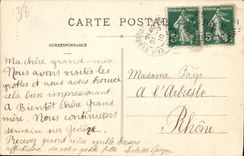 38
CARTE POSTALE
CORRESPONDANCE
Ma chère grand-mère
Nous avons visité les
grottes et nous avons trouvé
cela bien impressionant
A Bientôt Chère Grand
mère. Nous continuons
demain sur
Recevez grand mère mille baisers
de votre petite fille
Madame
à l'Arbresle
Rhône
5
5